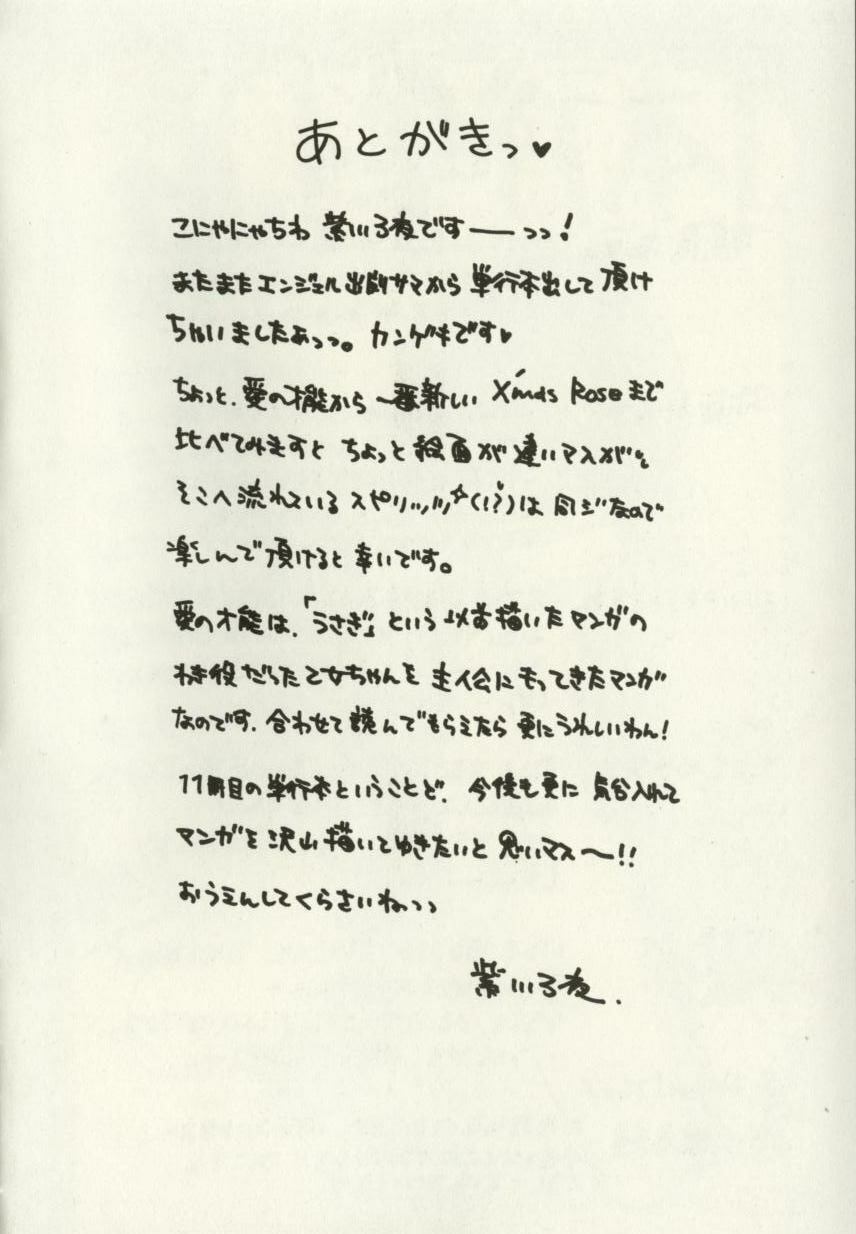 あとがきっ♥
こにゃにゃちわ 紫いろ夜です——っっ!
またまたエンジェル出版サマから 単行本出して頂け
ちゃいましたぁっっ。カンゲキです♥
ちょっと、愛の才能から 一番新しい X'mas Roseまで
比べてみますと ちょっと絵面が違いマスが
そこへ流れている スピリッツ(!?)は 同ジなので
楽しんで頂けると 幸いです。
愛の才能は、「うさぎ」という以前描いたマンガの
わき役だった乙女ちゃんを 主人公にもってきたマンガ
なのです、合わせて読んでもらえたら 更にうれしいわん!
11冊目の単行本ということで、今後も更に 気合入れて
マンガを沢山描いてゆきたいと 思いマス〜!!
おうえんしてくらさいねっっ
紫いろ夜.